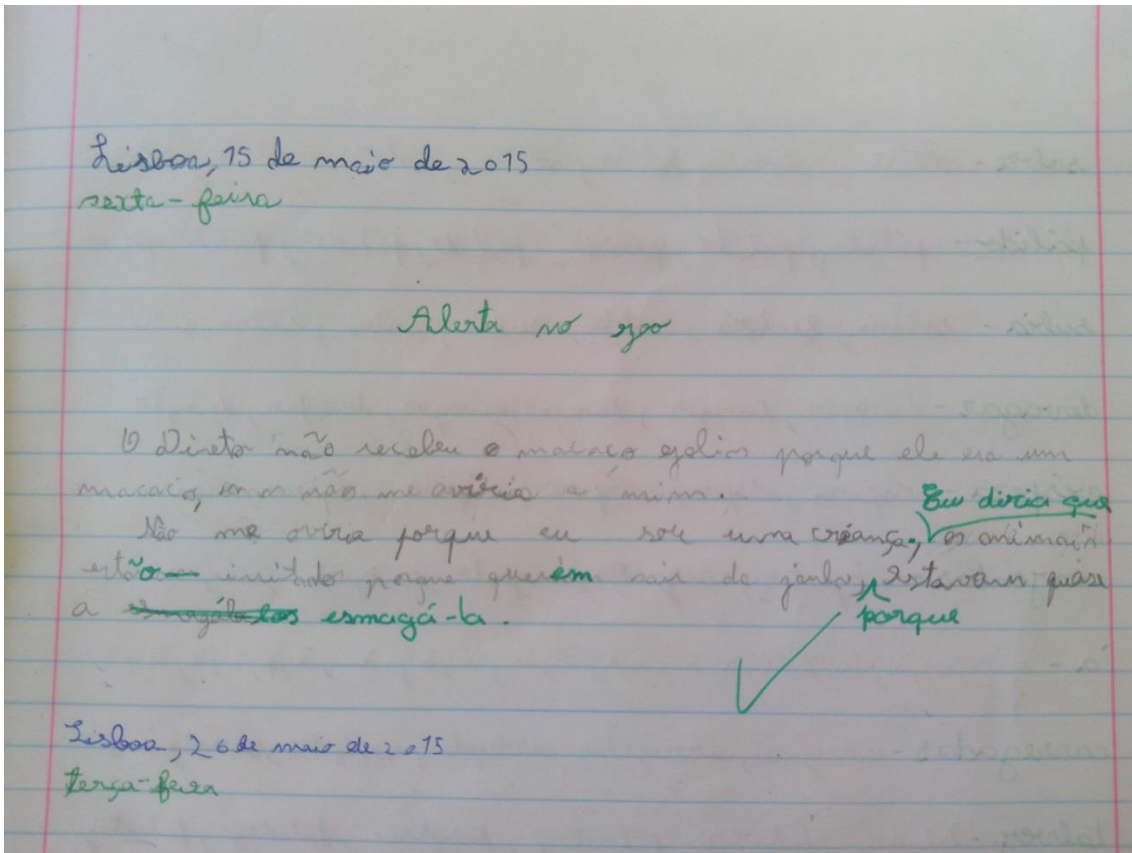 Lisboa, 15 de maio de 2015
sexta-feira
Alerta no zoo
O Diretor não recebeu o macaco golias porque ele era um
macaco, não me oviria a mim.
Eu diria que
Não me oviria porque eu sou uma criança, os animais
estão irritado porque querem sair da jaula, estavam quase
a esmagá-la.
porque
Lisboa, 26 de maio de 2015
terça-feira